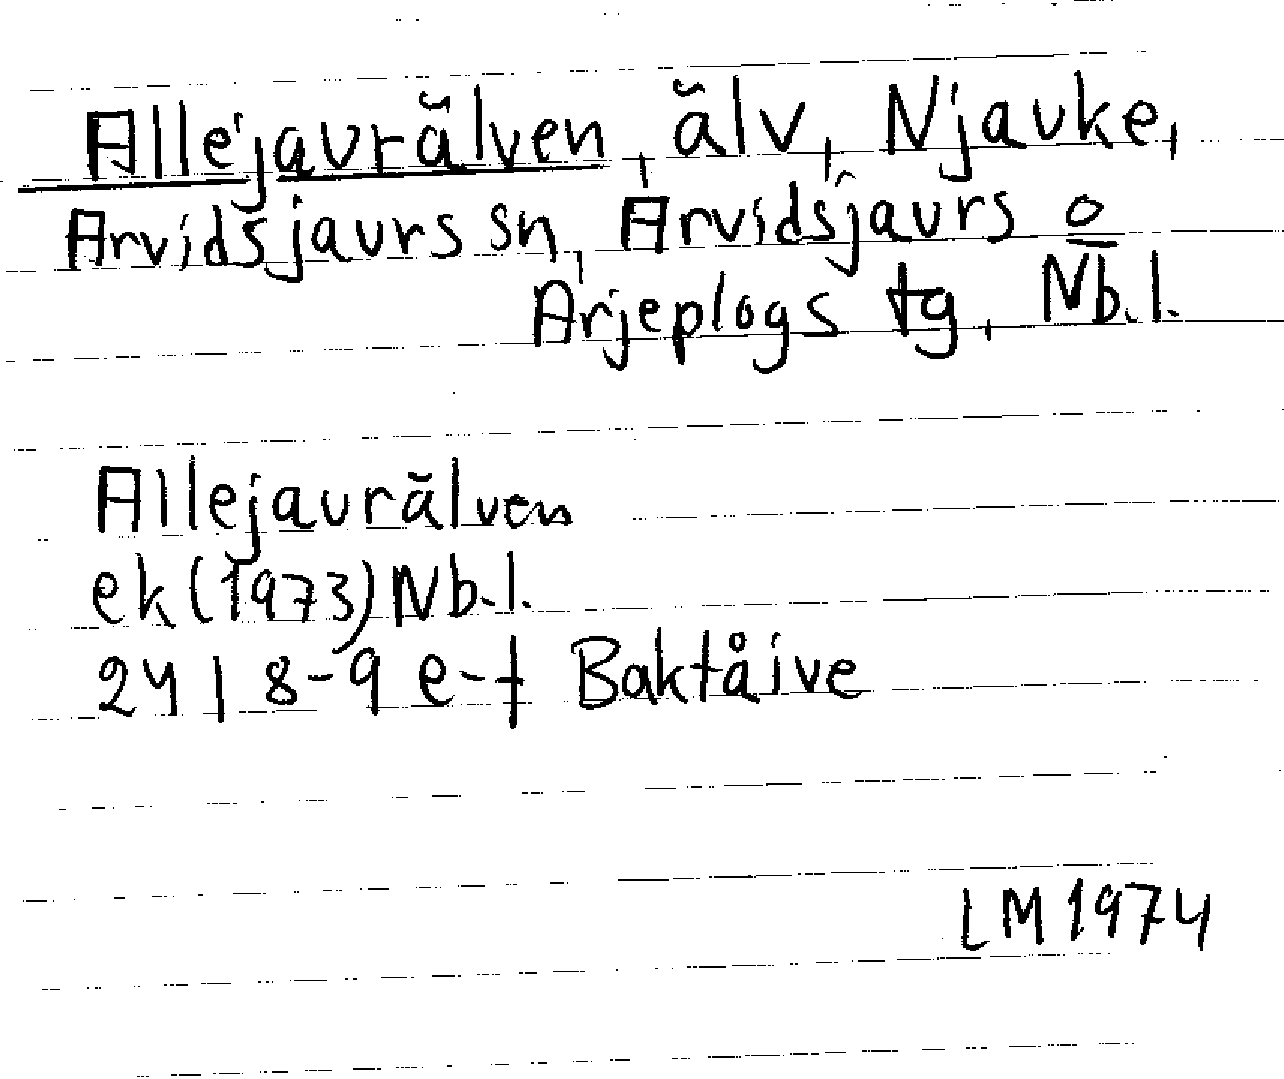 Allejaurälven, älv, Njauke,
Arvidsjaurs sn, Arvidsjaurs o
Arjeplogs tg, Nb.l.
Allejaurälven
ek (1973) Nb.l.
24 I 8-9 e-f Baktåive
LM 1974